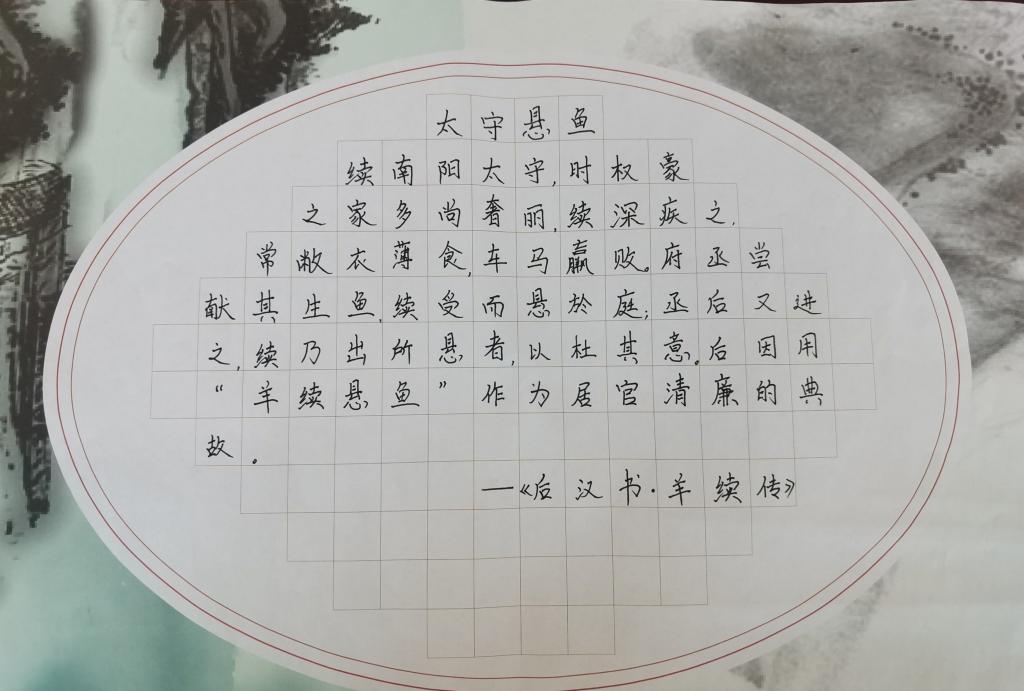 太守悬鱼
续南阳太守,时权豪
之家多尚奢丽,续深疾之,
常敝衣薄食,车马羸败。府丞尝
献其生鱼,续受而悬於庭;丞后又进
之,续乃出所悬者,以杜其意。后因用
“羊续悬鱼”作为居官清廉的典
故。
—《后汉书·羊续传》